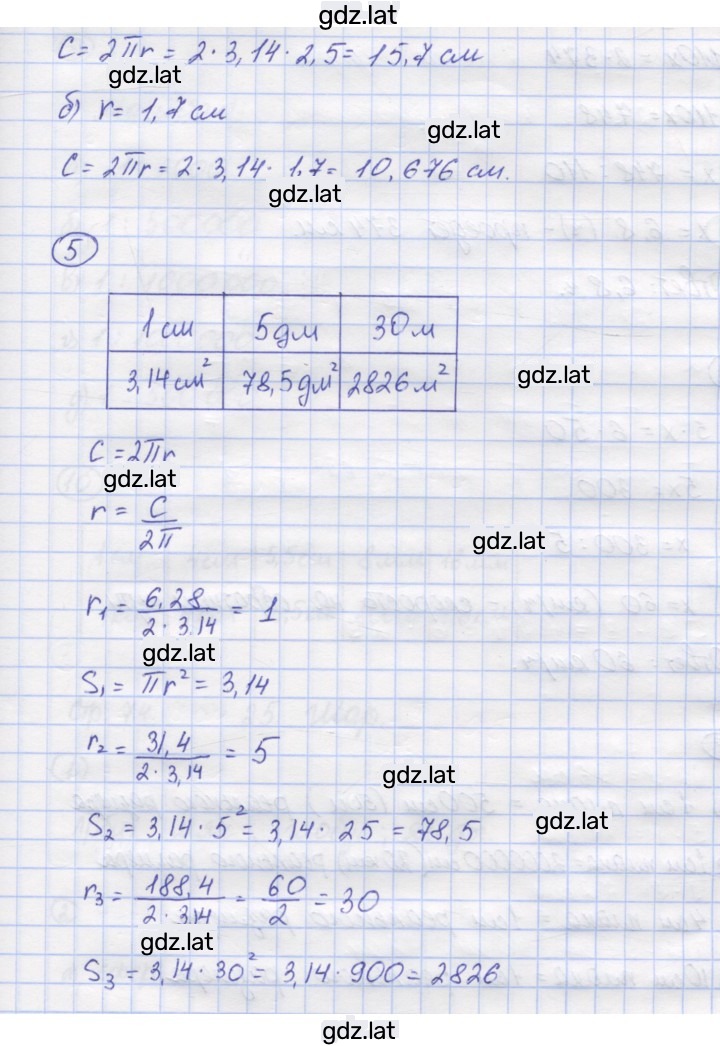 gdz.lat
C = 2πr = 2 · 3,14 · 2,5 = 15,7 см
gdz.lat
б) r = 1,7 см
gdz.lat
C = 2πr = 2 · 3,14 · 1,7 = 10,676 см.
gdz.lat
5
1 см 5 дм 30 м
3,14 см² 78,5 дм² 2826 м²
gdz.lat
C = 2πr
gdz.lat
r = C / 2π
gdz.lat
r₁ = 6,28 / 2 · 3,14 = 1
gdz.lat
S₁ = πr² = 3,14
r₂ = 31,4 / 2 · 3,14 = 5
gdz.lat
S₂ = 3,14 · 5² = 3,14 · 25 = 78,5
gdz.lat
r₃ = 188,4 / 2 · 3,14 = 60 / 2 = 30
gdz.lat
S₃ = 3,14 · 30² = 3,14 · 900 = 2826
gdz.lat